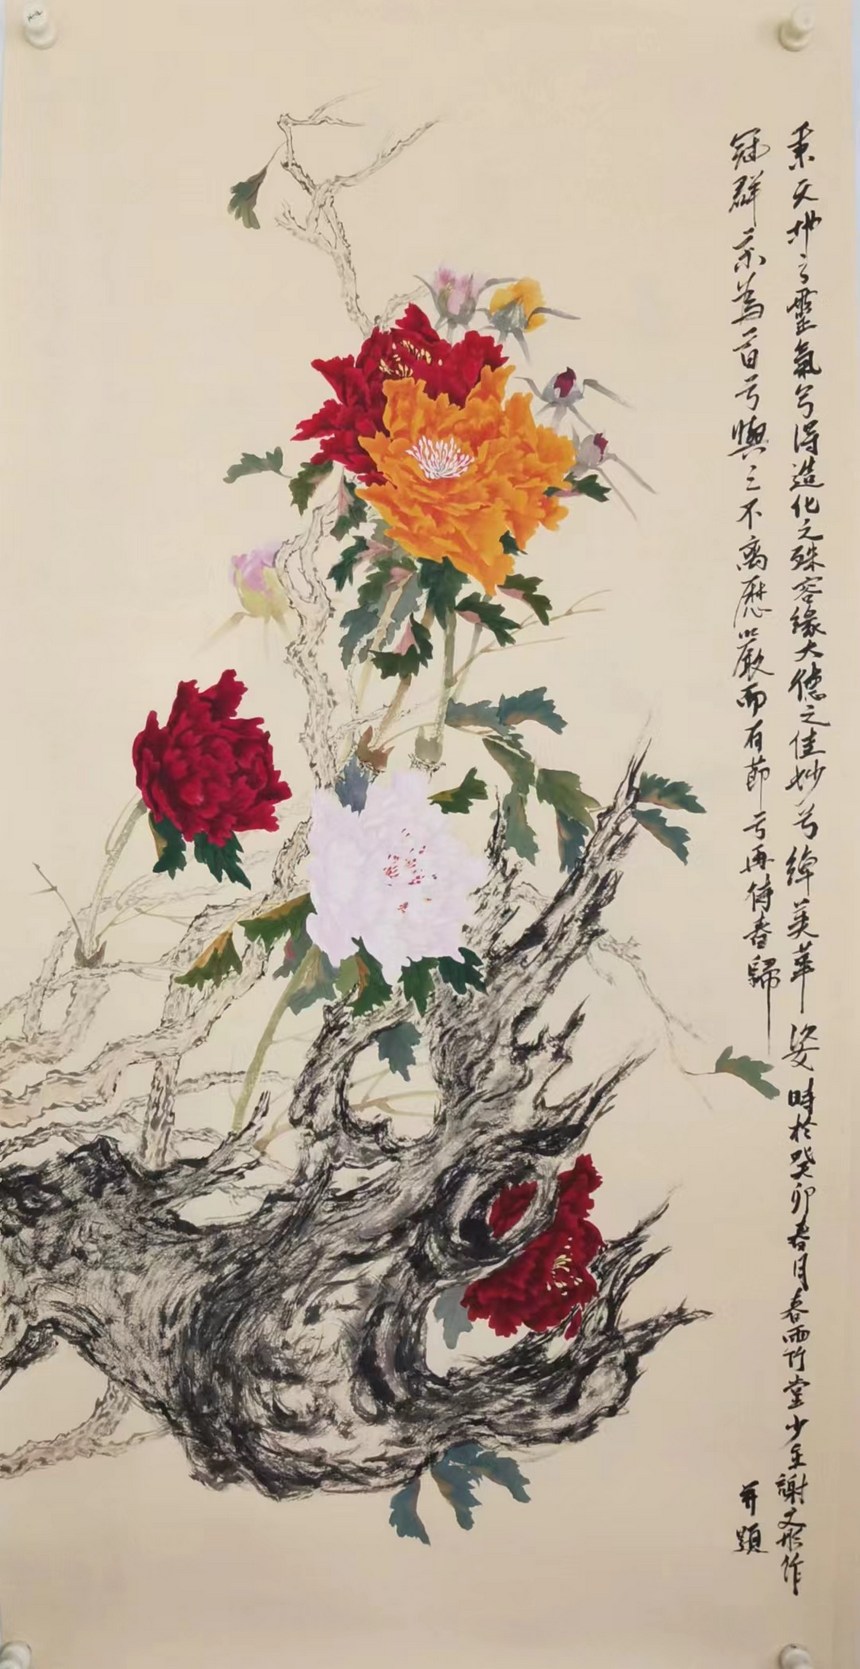 秉天地之靈氣兮得造化之殊容缘大德之佳妙兮綽美華姿時於癸卯春月春雨竹堂少主謝文彤作
冠群示為首兮與之不离歷以嚴而有節兮再待春歸
并題